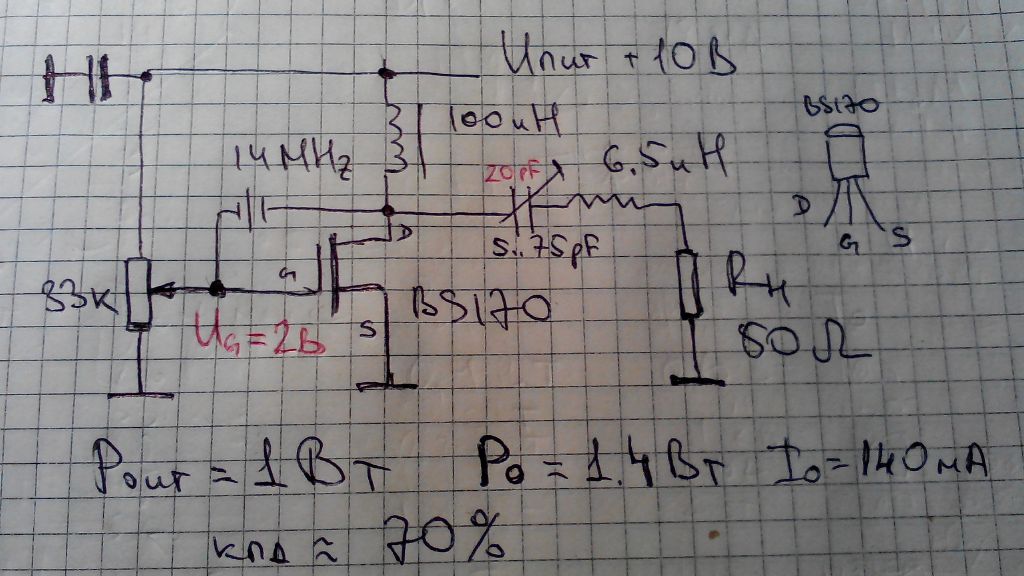 Uпит +10В
100uH
BS170
14MHz
20pF
6.5uH
D
D
G
S
5..75pF
G
33к
BS170
Rн
UG=2В
S
50Ω
Pout = 1Вт P0 = 1.4Вт I0=140мА
кпд ≈ 70%